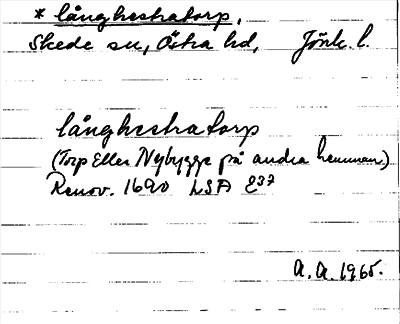 * långhestratorp,
Skede sn, Östra hd, Jönk. l.
långhestratorp
(Torp Eller Nybygge på andra hemman)
Renov. 1690 LSA E37
A. A. 1965.